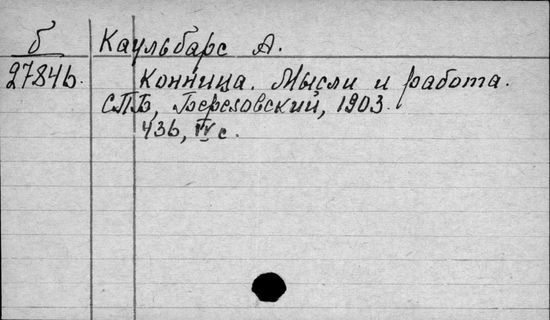 б Каульбарс А.
27846. Конница. Мысли и работа.
СПБ, Березовский, 1903.
436, IV с.